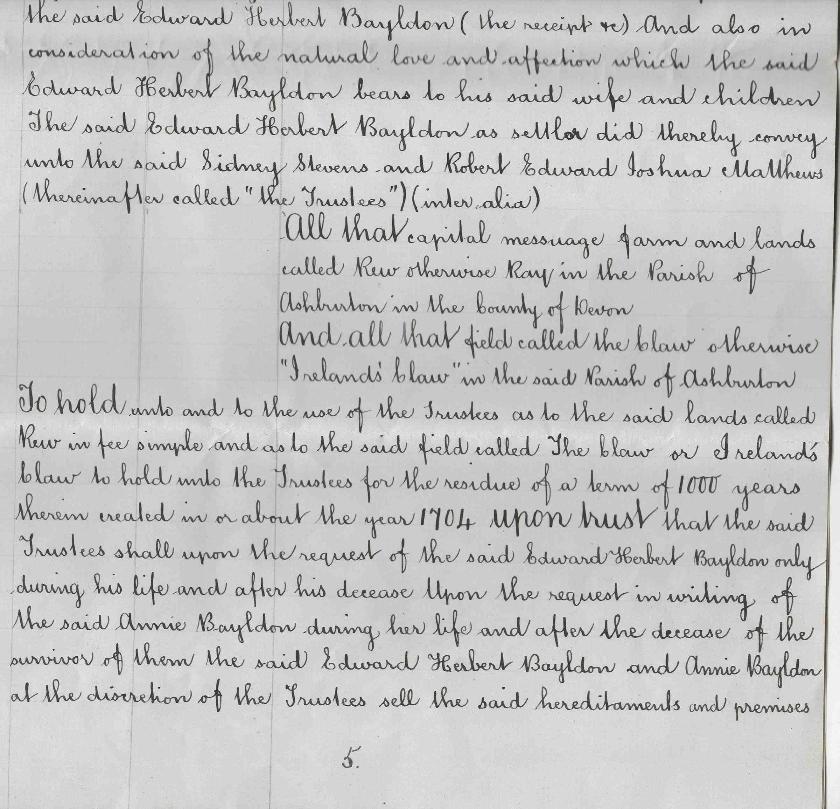 the said Edward Herbert Bayldon (the receipt &c) And also in
consideration of the natural love and affection which the said
Edward Herbert Bayldon bears to his said wife and children
The said Edward Herbert Bayldon as settlor did thereby convey
unto the said Sidney Stevens and Robert Edward Joshua Matthews
(thereinafter called "the Trustees") (inter alia)
All that capital messuage farm and lands
called Rew otherwise Ray in the Parish of
Ashburton in the County of Devon
And all that field called the Claw otherwise
"Ireland's Claw" in the said Parish of Ashburton
To hold unto and to the use of the Trustees as to the said lands called
Rew in fee simple and as to the said field called The Claw or Ireland's
Claw to hold unto the Trustees for the residue of a term of 1000 years
therein created in or about the year 1704 upon trust that the said
Trustees shall upon the request of the said Edward Herbert Bayldon only
during his life and after his decease Upon the request in writing of
the said Annie Bayldon during her life and after the decease of the
survivor of them the said Edward Herbert Bayldon and Annie Bayldon
at the discretion of the Trustees sell the said hereditaments and premises
5.